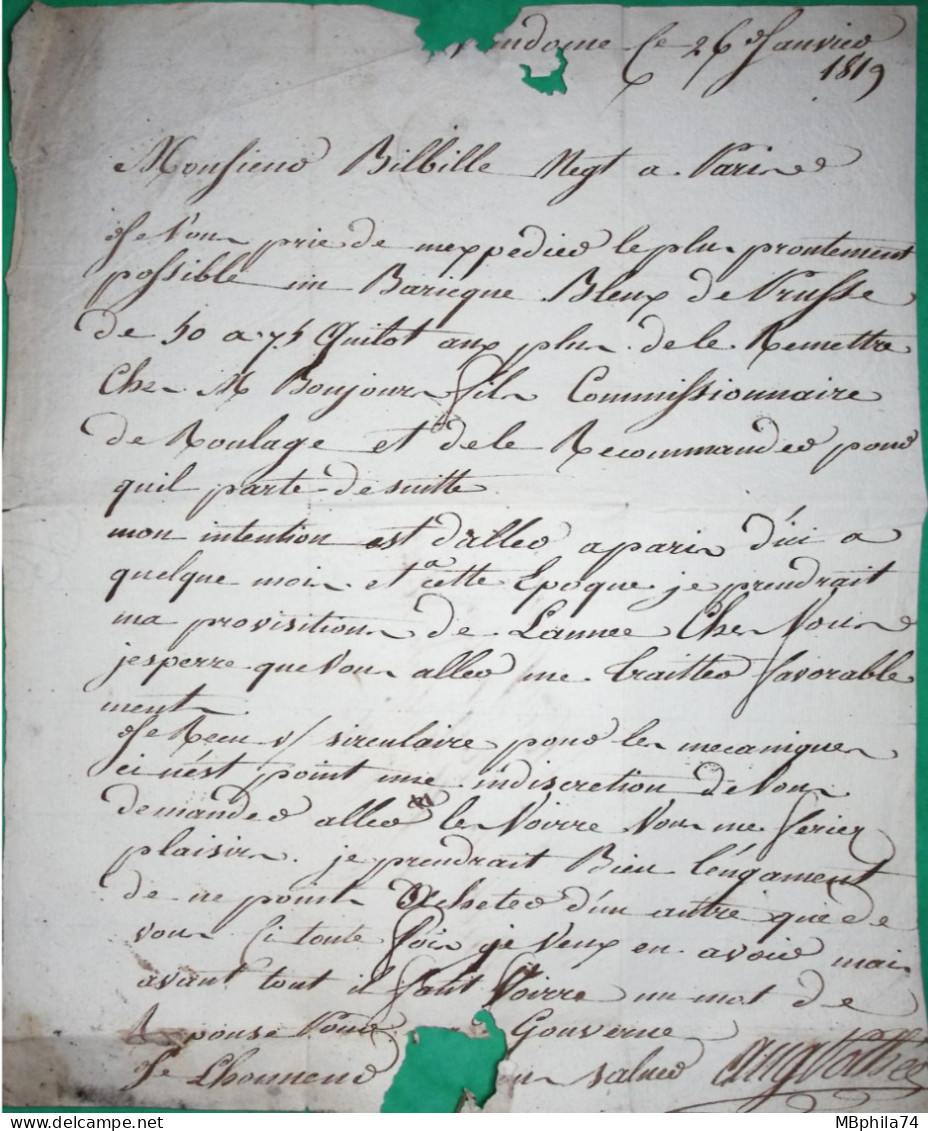 Vendome Ce 26 Janvier
1819
Monsieur Bilbille Negt a Paris
Je Vous prie de mexpedier le plus prontement
possible un Baricque Bleux de Prusse
de 50 a 75 Quilot aux plus de le Remettre
Chez M Boujour fils Commissionnaire
de Roulage et de le Recommander pour
quil parte de suitte
mon intention est daller a paris d'ici a
quelque mois et a cette Epoque je prendrait
ma provisitions de Lannee Chez Vous
jesperre que Vous aller me traitter favorable
ment
Je Recu v/ sirculaire pour les mecaniques
ci n'est point une indiscretion de Vous
demander aller le Voirre Vous me feriez
plaisir. je prendrait Bien l'engament
de ne point Acheter d'un autre que de
vous Si toute fois je Veux en avoir mais
avant tout il faut Voirre un mot de
Reponse Pour Gouverne
Je Lhonneur saluer
MBphila74